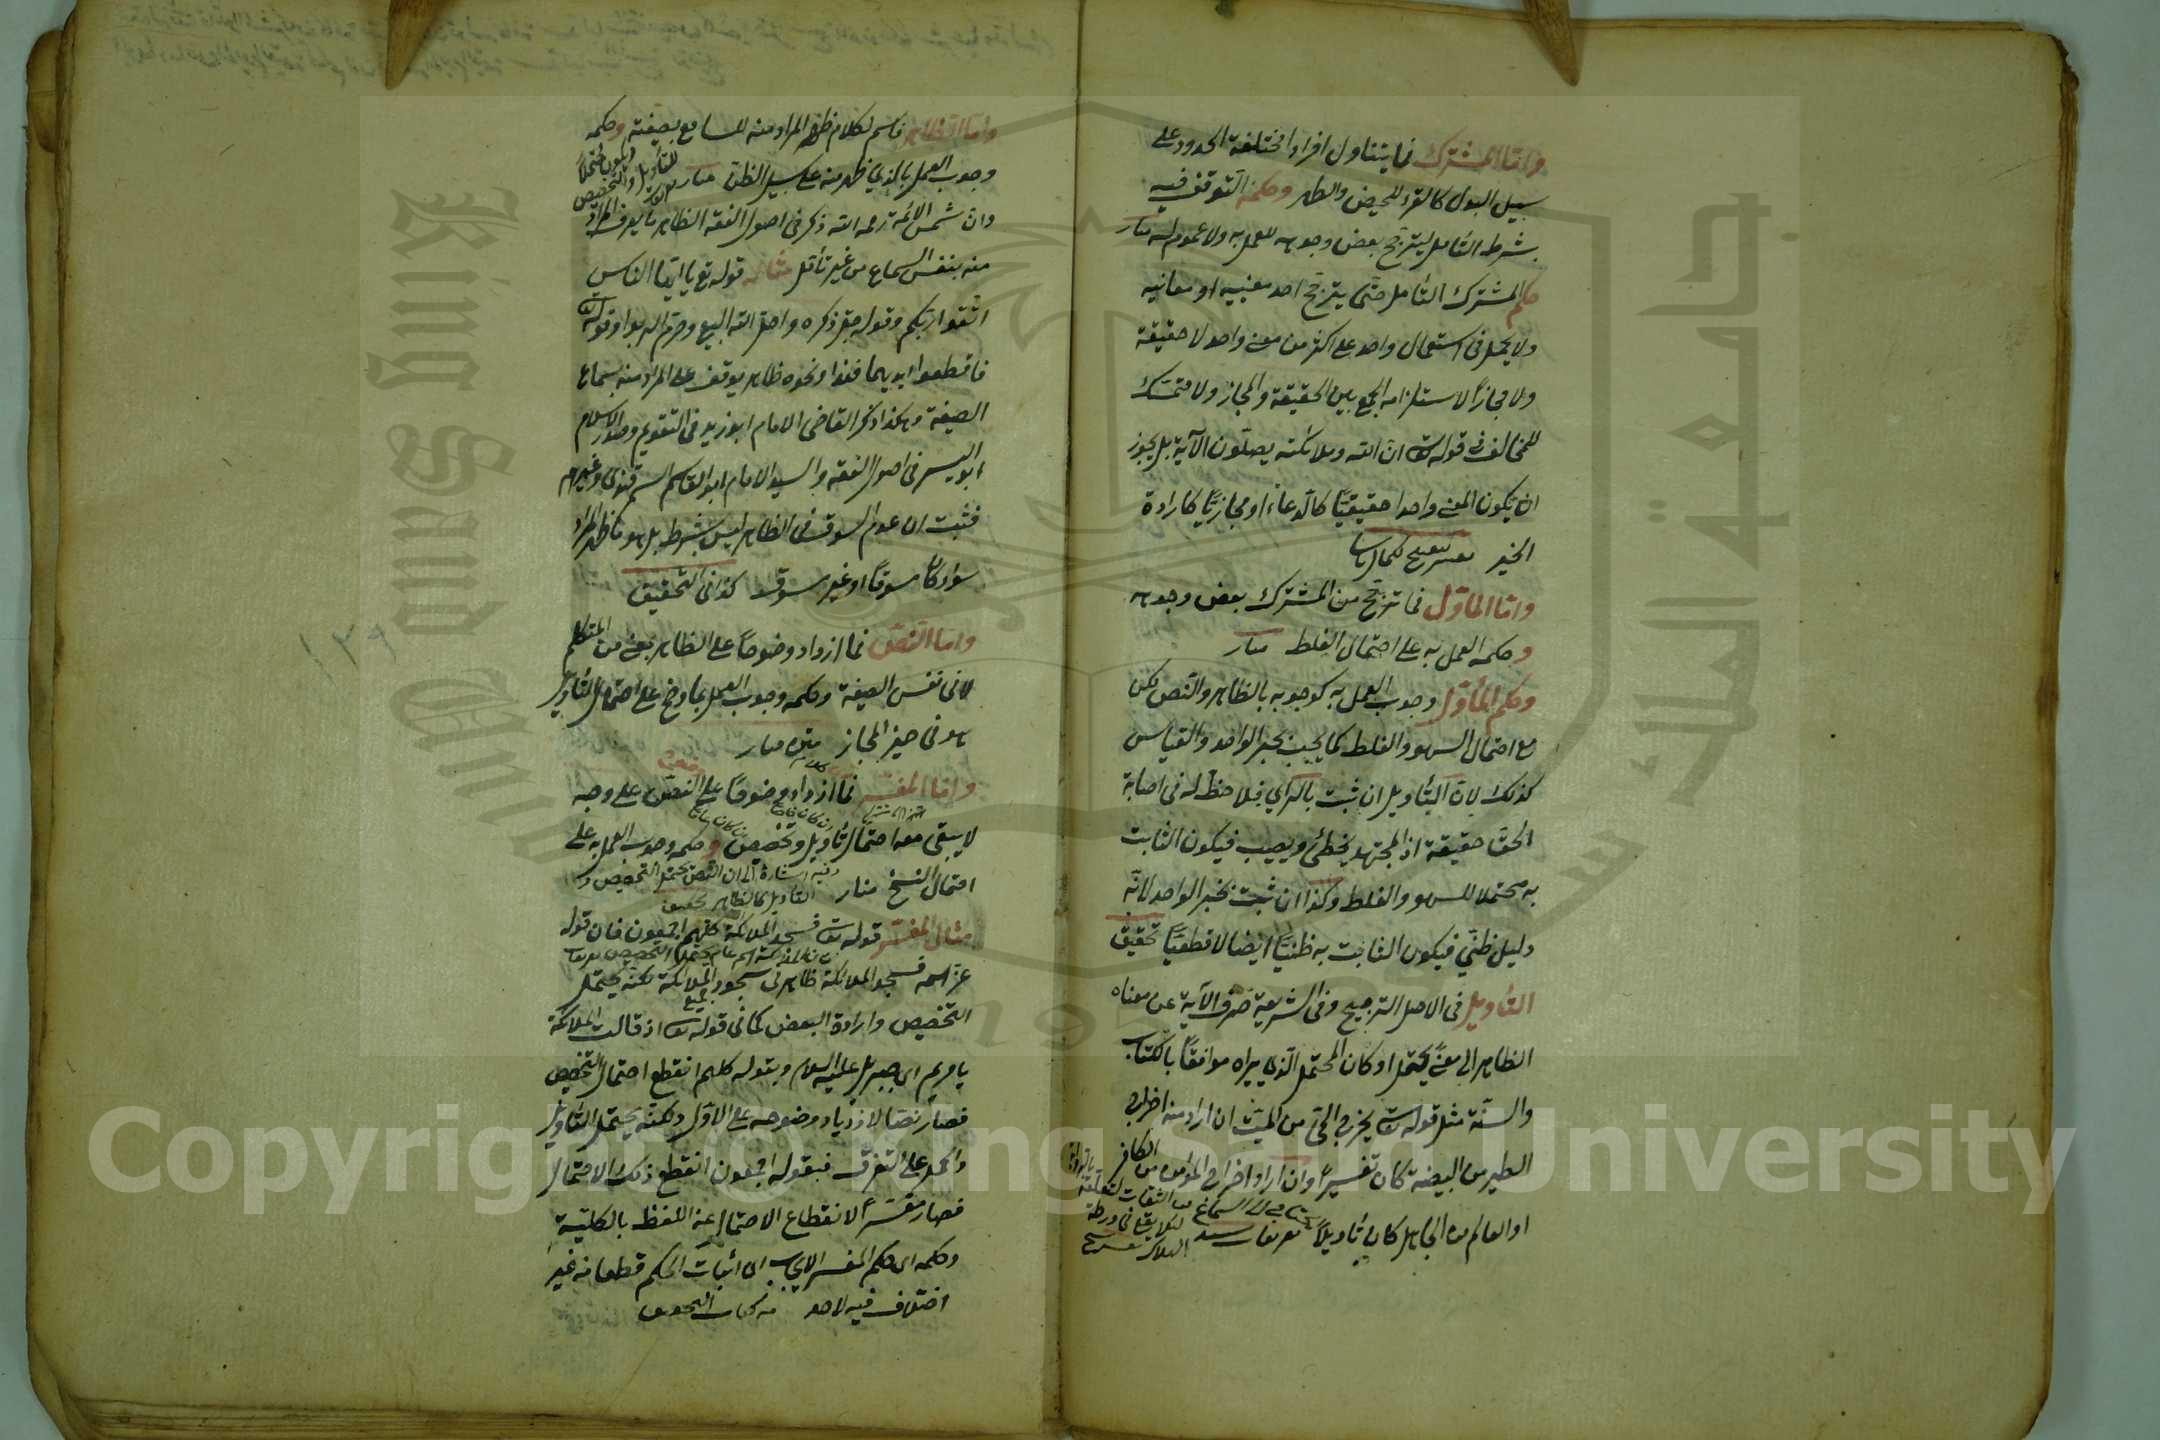 واما المشترك فما يتناول افرادا مختلفة الحدود على
سبيل البدل كالقرء للحيض والطهر وحكمه التوقف فيه
بشرط التأمل ليترجح بعض وجوهه للعمل به ولا عموم له منار
حكم المشترك التأمل حتى يترجح احد معنييه او معانيه
ولا يحمل في استعمال واحد على اكثر من معنى واحد لا حقيقة
ولا مجازا لاستلزامه الجمع بين الحقيقة والمجاز ولا متمسك
للمخالف في قوله تعالى ان الله وملائكته يصلون الآية بل يجوز
ان يكون المعنى واحدا حقيقيا كالدعاء او مجازيا كارادة
الخير
واما الماؤل فما ترجح من المشترك بعض وجوهه
وحكمه العمل به على احتمال الغلط منار
وحكم المأول وجوب العمل به كوجوبه بالظاهر والنص لكن
مع احتمال السهو والغلط كما يجب بخبر الواحد والقياس
كذلك لان التأويل ان ثبت بالرأي فلا حظ له في اصابة
الحق حقيقة اذ المجتهد يخطئ ويصيب فيكون الثابت
به محتملا للسهو والغلط وكذا ان ثبت بخبر الواحد لانه
دليل ظني فيكون الثابت به ظنيا ايضا لا قطعيا تحقيق
التأويل في الاصل الترجيح وفي الشريعة صرف الآية عن معناه
الظاهر الى معنى يحتمل اذ كان المحتمل الذي يراه موافقا بالكتاب
والسنة مثل قوله تعالى يخرج الحي من الميت ان اراد منه اخراج
الطير من البيضة كان تفسيرا وان اراد اخراج المؤمن من الكافر
او العالم من الجاهل كان تأويلا تعريفات سيد
واما الظاهر فاسم لكلام ظهر المراد منه للسامع بصيغته وحكمه
وجوب العمل بالذي ظهر منه على سبيل الظن منار
وان شمس الائمة رحمه الله ذكر في اصول الفقه الظاهر ما يعرف المراد
منه بنفس السماع من غير تأمل مثاله قوله تع يا ايها الناس
اتقوا ربكم وقوله جل ذكره واحل الله البيع وحرم الربوا وقوله تعالى
فاقطعوا ايديهما فهذا ونحوه ظاهر يوقف على المراد منه بسماع
الصيغة وهكذا ذكر القاضي الامام ابو زيد في التقويم وصدر الاسلام
ابو اليسر في اصول الفقه والسيد الامام ابو القاسم السمرقندي وغيرهم
فثبت ان عدم السوق في الظاهر ليس بشرط بل هو ما ظهر المراد
سواء كان مسوقا او غير مسوق كذا في التحقيق
واما النص فما ازداد وضوحا على الظاهر بمعنى من المتكلم
لا في نفس الصيغة وحكمه وجوب العمل بما وضح على احتمال تأويل
هو في حيز المجاز متن منار
واما المفسر فما ازداد وضوحا على النص على وجه
لا يبقى معه احتمال تأويل وتخصيص وحكمه وجوب العمل به على
وفيه اشارة الى ان النص يحتمل التخصيص و
احتمال النسخ منار
التأويل كالظاهر تحقيق
مثال المفسر قوله تعالى فسجد الملائكة كلهم اجمعون فان قوله
عز اسمه فسجد الملائكة ظاهر في سجود جميع الملائكة لكنه يحتمل
التخصيص وارادة البعض كما في قوله تعالى اذ قالت الملائكة
يا مريم اي جبريل عليه السلام وبقوله كلهم انقطع احتمال التخصيص
فصار نصا لازدياد وضوحه على الاول ولكنه يحتمل التأويل
والحمل على التفرق فبقوله اجمعون انقطع ذلك الاحتمال
فصار مفسرا لانقطاع الاحتمال عن اللفظ بالكلية
وحكمه اي حكم المفسر الايجاب اي اثبات الحكم قطعا من غير
اختلاف فيه لاحد من كتاب التحقيق
١٣٩
King Saud University
جامعة الملك سعود
1957
Copyright © King Saud University